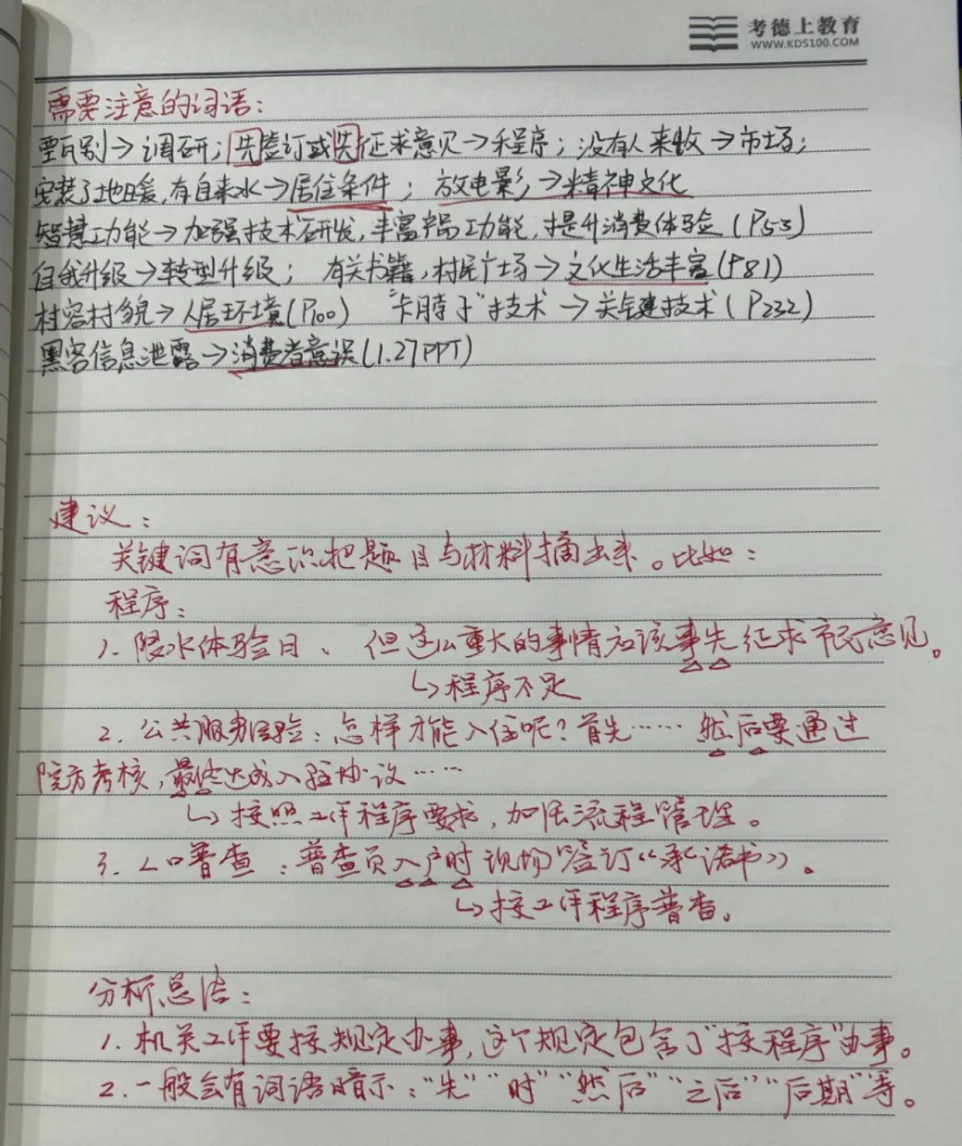 考德上教育
WWW.KDS100.COM
需要注意的词语：
甄别→调研；先签订或先征求意见→程序；没有人来收→市场；
安装了地暖，有自来水→居住条件；放电影→精神文化
智慧功能→加强技术研发，丰富产品功能，提升消费体验（P53）
自我升级→转型升级；有关书籍，村民广场→文化生活丰富（P81）
村容村貌→人居环境（P100） “卡脖子”技术→关键技术（P232）
黑客信息泄露→消费者意识（1.27PPT）
建议：
关键词有意识把题目与材料摘出来。比如：
程序：
1. 限水体验日、但这么重大的事情应该事先征求市民意见。
↳程序不足
2. 公共服务经验：怎样才能入住呢？首先……然后要通过
院方考核，最终达成入驻协议……
↳按照工作程序要求，加强流程管理。
3. 人口普查：普查员入户时现场签订《承诺书》。
↳按工作程序普查。
分析总结：
1. 机关工作要按规定办事，这个规定包含了“按程序”办事。
2. 一般会有词语暗示：“先”“时”“然后”“之后”“后期”等。